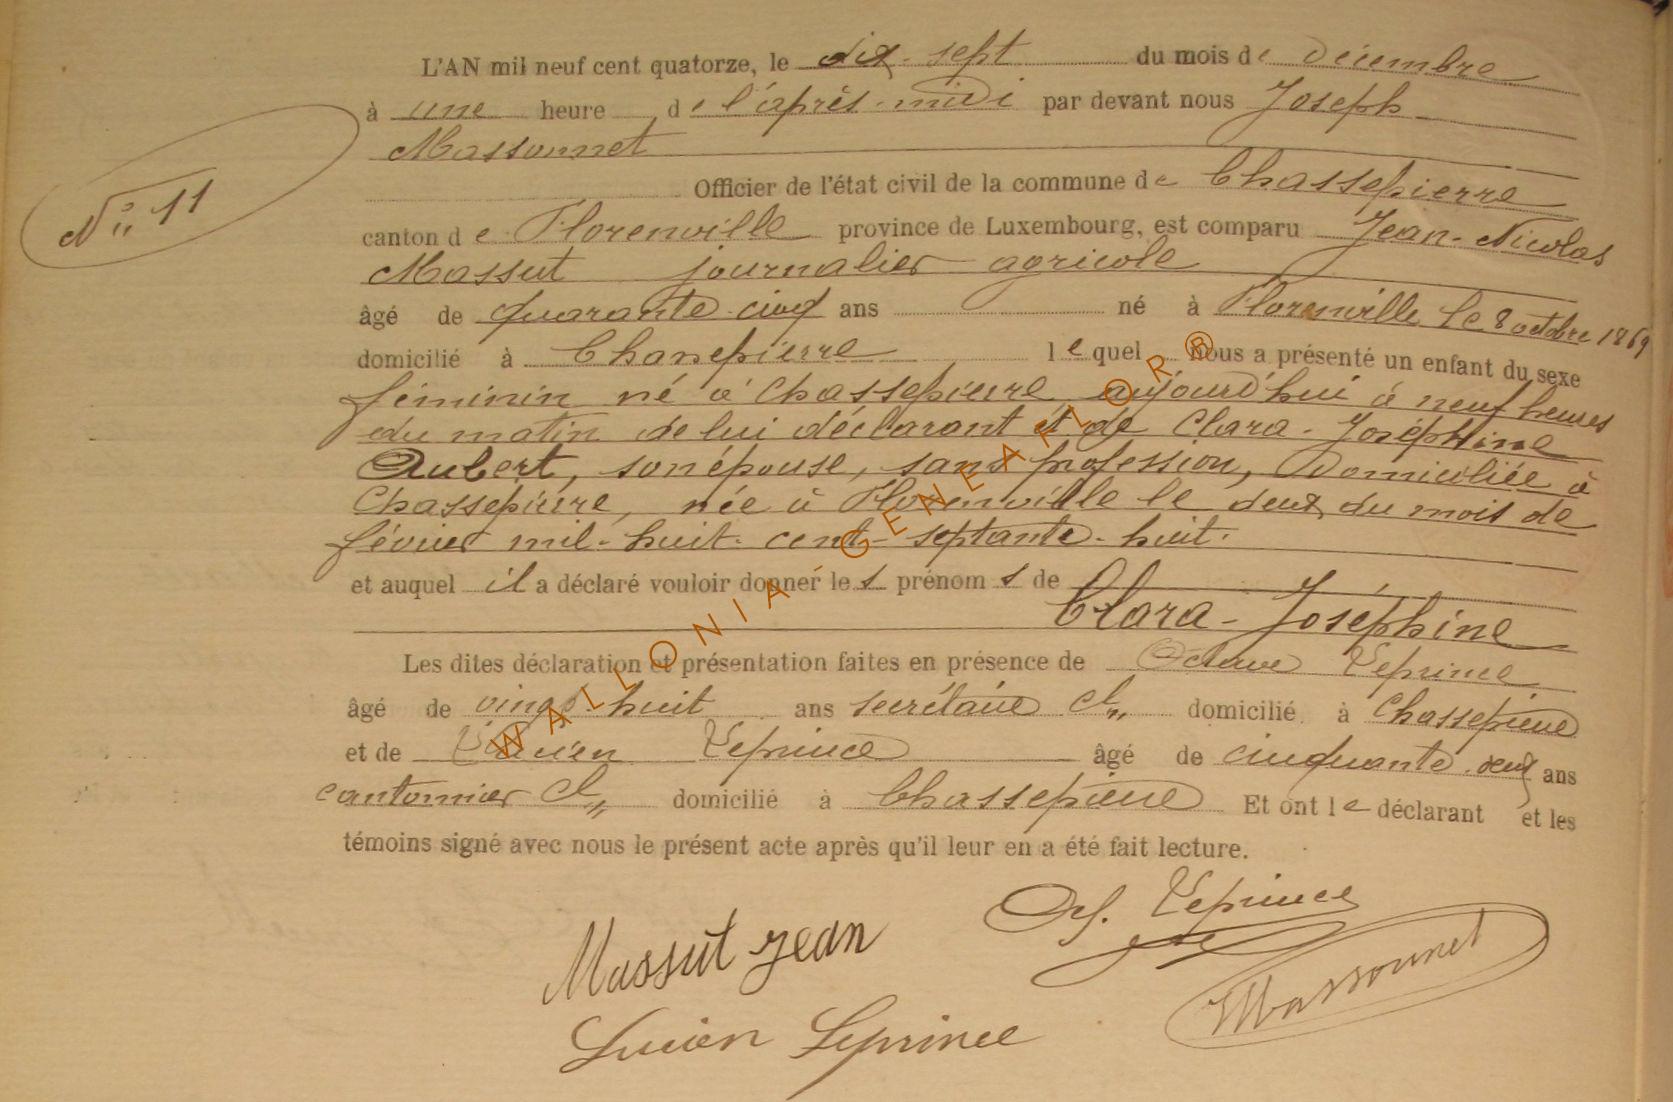 L'AN mil neuf cent quatorze, le dix-sept du mois de Décembre
à une heure de l'après-midi par devant nous Joseph
Massonnet
Officier de l'état civil de la commune de Chassepierre
N° 11
canton de Florenville province de Luxembourg, est comparu Jean-Nicolas
Massut journalier agricole
âgé de quarante cinq ans né à Florenville le 8 octobre 1869
domicilié à Chassepierre lequel nous a présenté un enfant du sexe
féminin né à Chassepierre aujourd'hui à neuf heures
du matin de lui déclarant et de Clara-Joséphine
Aubert, son épouse, sans profession, domiciliée à
Chassepierre, née à Florenville le deux du mois de
février mil-huit-cent-septante-huit.
et auquel il a déclaré vouloir donner les prénoms de
Clara-Joséphine
Les dites déclaration et présentation faites en présence de Octave Leprince
âgé de vingt-huit ans secrétaire cl domicilié à Chassepierre
et de Lucien Leprince âgé de cinquante-deux ans
cantonnier cl domicilié à Chassepierre Et ont le déclarant et les
témoins signé avec nous le présent acte après qu'il leur en a été fait lecture.
Leprince
Massut Jean
Massonnet
Lucien Leprince
WALLONIA GENEAFLOR®